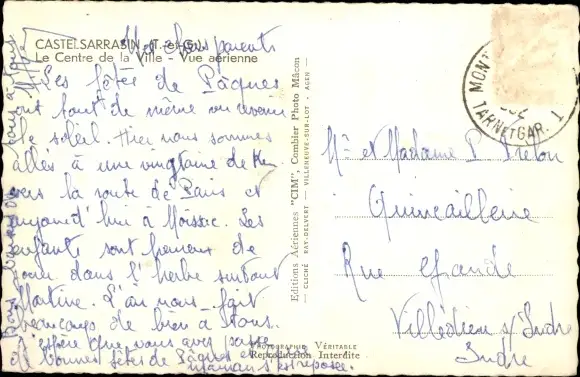 CASTELSARRASIN (T.-et-G.)
Le Centre de la Ville - Vue aérienne
Mes chers parents
Les fêtes de Pâques
ont tout de même vu
le soleil. Hier nous sommes
allés à une vingtaine de Km
vers la route de Paris et
aujourd'hui à Moissac. Les
enfants sont heureux de
jouer dans l'herbe surtout
Martine. L'air nous fait
beaucoup de bien à tous.
J'espère que vous avez passé
de bonnes fêtes de Pâques et
maman s'est reposée.
Bons baisers
à tous
Editions Aériennes "CIM", Combier Photo Mâcon
CLICHÉ RAY-DELVERT - VILLENEUVE-SUR-LOT - AGEN
PHOTOGRAPHIE VÉRITABLE
Reproduction Interdite
MON
TARN ET GAR. 1
Mr et Madame P.
Quincaillerie
Rue Grande
Villedieu s/ Indre
Indre